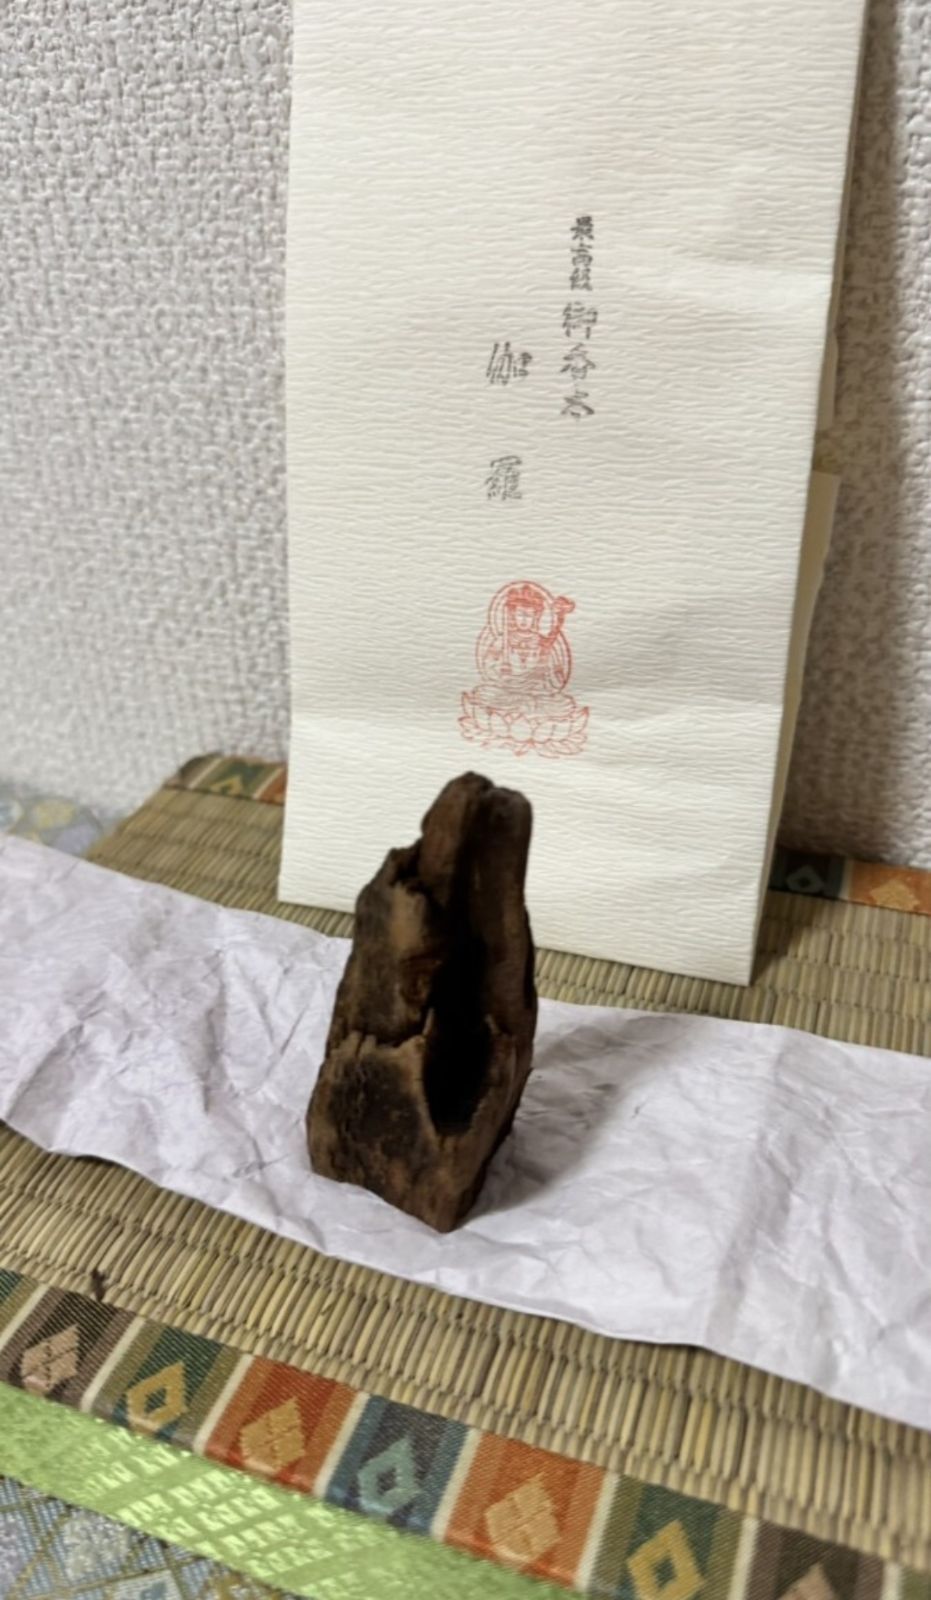 最高級御香木
伽羅